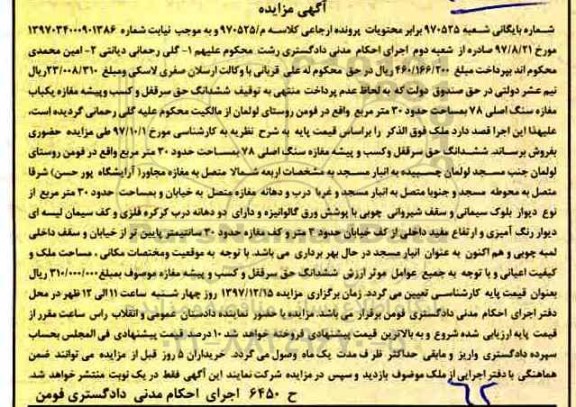 آگهی مزایده
شماره بایگانی شعبه ۹۷۰۵۲۵ برابر محتویات پرونده ارجاعی کلاسه م/۹۷۰۵۲۵ و به موجب نیابت شماره ۱۳۹۷۰۳۴۰۰۰۹۰۱۳۸۶
مورخ ۹۷/۸/۲۱ صادره از شعبه دوم اجرای احکام مدنی دادگستری رشت محکوم علیهم ۱- گلی رحمانی دیانتی ۲- امین محمدی
محکوم اند بپرداخت مبلغ ۴۶۰/۱۶۶/۲۰۰ ریال در حق محکوم له علی قربانی با وکالت ارسلان صفری لاسکی ومبلغ ۲۳/۰۰۸/۳۱۰ریال
نیم عشر دولتی در حق صندوق دولت که به لحاظ عدم پرداخت منتهی به توقیف ششدانگ حق سرقفل و کسب وپیشه مغازه یکباب
مغازه سنگ اصلی ۷۸ بمساحت حدود ۳۰ متر مربع واقع در فومن روستای لولمان از مالکیت محکوم علیه گلی رحمانی گردیده است،
علیهذا این اجرا قصد دارد ملک فوق الذکر را براساس قیمت پایه به شرح نظریه به کارشناسی مورخ ۹۷/۱۰/۱ طی مزایده حضوری
بفروش برساند. ششدانگ حق سرقفل وکسب و پیشه مغازه سنگ اصلی ۷۸ بمساحت حدود ۳۰ متر مربع واقع در فومن روستای
لولمان جنب مسجد لولمان چسبیده به انبار مسجد به مشخصات اربعه شمالا متصل به مغازه مجاور( آرایشگاه پور حسن) شرقا
متصل به محوطه مسجد و جنوبا متصل به انبار مسجد و غربا درب و دهانه مغازه متصل به خیابان و بمساحت حدود ۳۰ متر مربع از
نوع دیوار بلوک سیمانی و سقف شیروانی چوبی با پوشش ورق گالوانیزه و دارای دو دهانه درب کرکره فلزی و کف سیمان لیسه ای
دیوار رنگ آمیزی و ارتفاع مفید داخلی از کف خیابان حدود ۳ متر و کف مغازه حدود ۳۰ سانتیمتر پایین تر از خیابان و سقف داخلی
لمبه چوبی و هم اکنون به عنوان انبار مسجد در حال بهر برداری می باشد. با توجه به موقعیت ومختصات مکانی ، مساحت ملک و
کیفیت اعیانی و با توجه به جمیع عوامل موثر ارزش ششدانگ حق سرقفل وکسب و پیشه مغازه موصوف بمبلغ ۳۱۰/۰۰۰/۰۰۰ ریال
بعنوان قیمت پایه کارشناسی تعیین می گردد. زمان برگزاری مزایده ۱۳۹۷/۱۲/۱۵ روز چهار شنبه ساعت ۱۱ الی ۱۲ ظهر در محل
دفتر اجرای احکام مدنی دادگستری فومن برقرار می باشد. مزایده با حضور نماینده دادستان عمومی و انقلاب راس ساعت مقرر از
قیمت پایه ارزیابی شده شروع و به بالاترین قیمت پیشنهادی فروخته خواهد شد ۱۰ درصد قیمت پیشنهادی فی المجلس بحساب
سپرده دادگستری واریز و مابقی حداکثر ظرف مدت یک ماه وصول می گردد. خریداران ۵ روز قبل از مزایده می توانند ضمن
هماهنگی با دفتر اجرایی از ملک موصوف بازدید و سپس در مزایده شرکت نمایند این آگهی فقط در یک نوبت منتشر خواهد شد
ح ۶۴۵۰ اجرای احکام مدنی دادگستری فومن